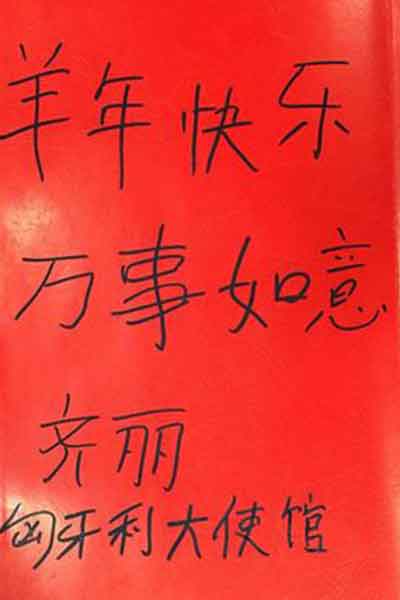 羊年快乐
万事如意
齐丽
匈牙利大使馆